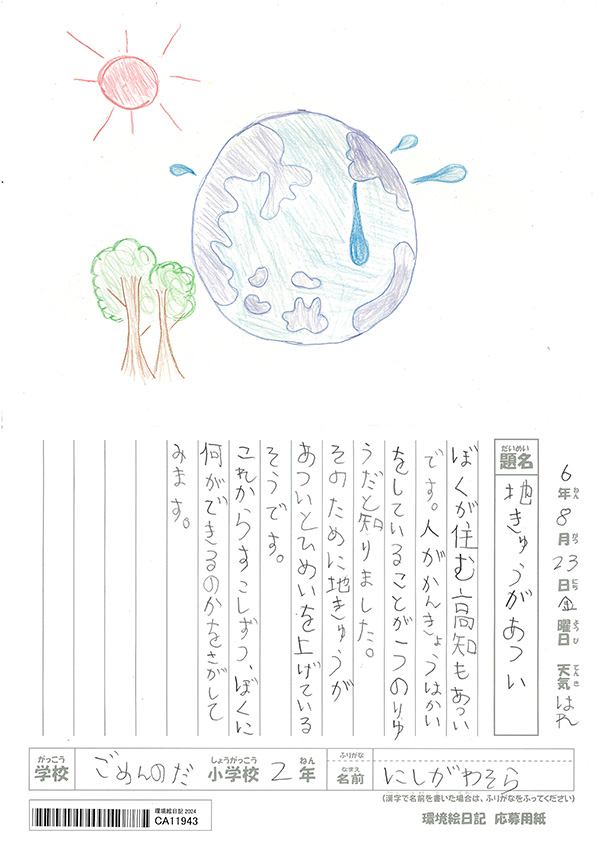 6年8月23日金曜日 天気はれ
ねん がつ にち ようび てんき
だいめい
題名
地きゅうがあつい
ぼくが住む高知もあつい
です。人がかんきょうはかい
をしていることが一つのりゆ
うだと知りました。
そのために地きゅうが
あついとひめいを上げている
そうです。
これからすこしずつ、ぼくに
何ができるのかをさがして
みます。
がっこう
学校
ごめんのだ
しょうがっこう
小学校
2
ねん
年
ふりがな
なまえ
名前
にしがわそら
(漢字で名前を書いた場合は、ふりがなをふってください)
環境絵日記 2024
CA11943
環境絵日記 応募用紙